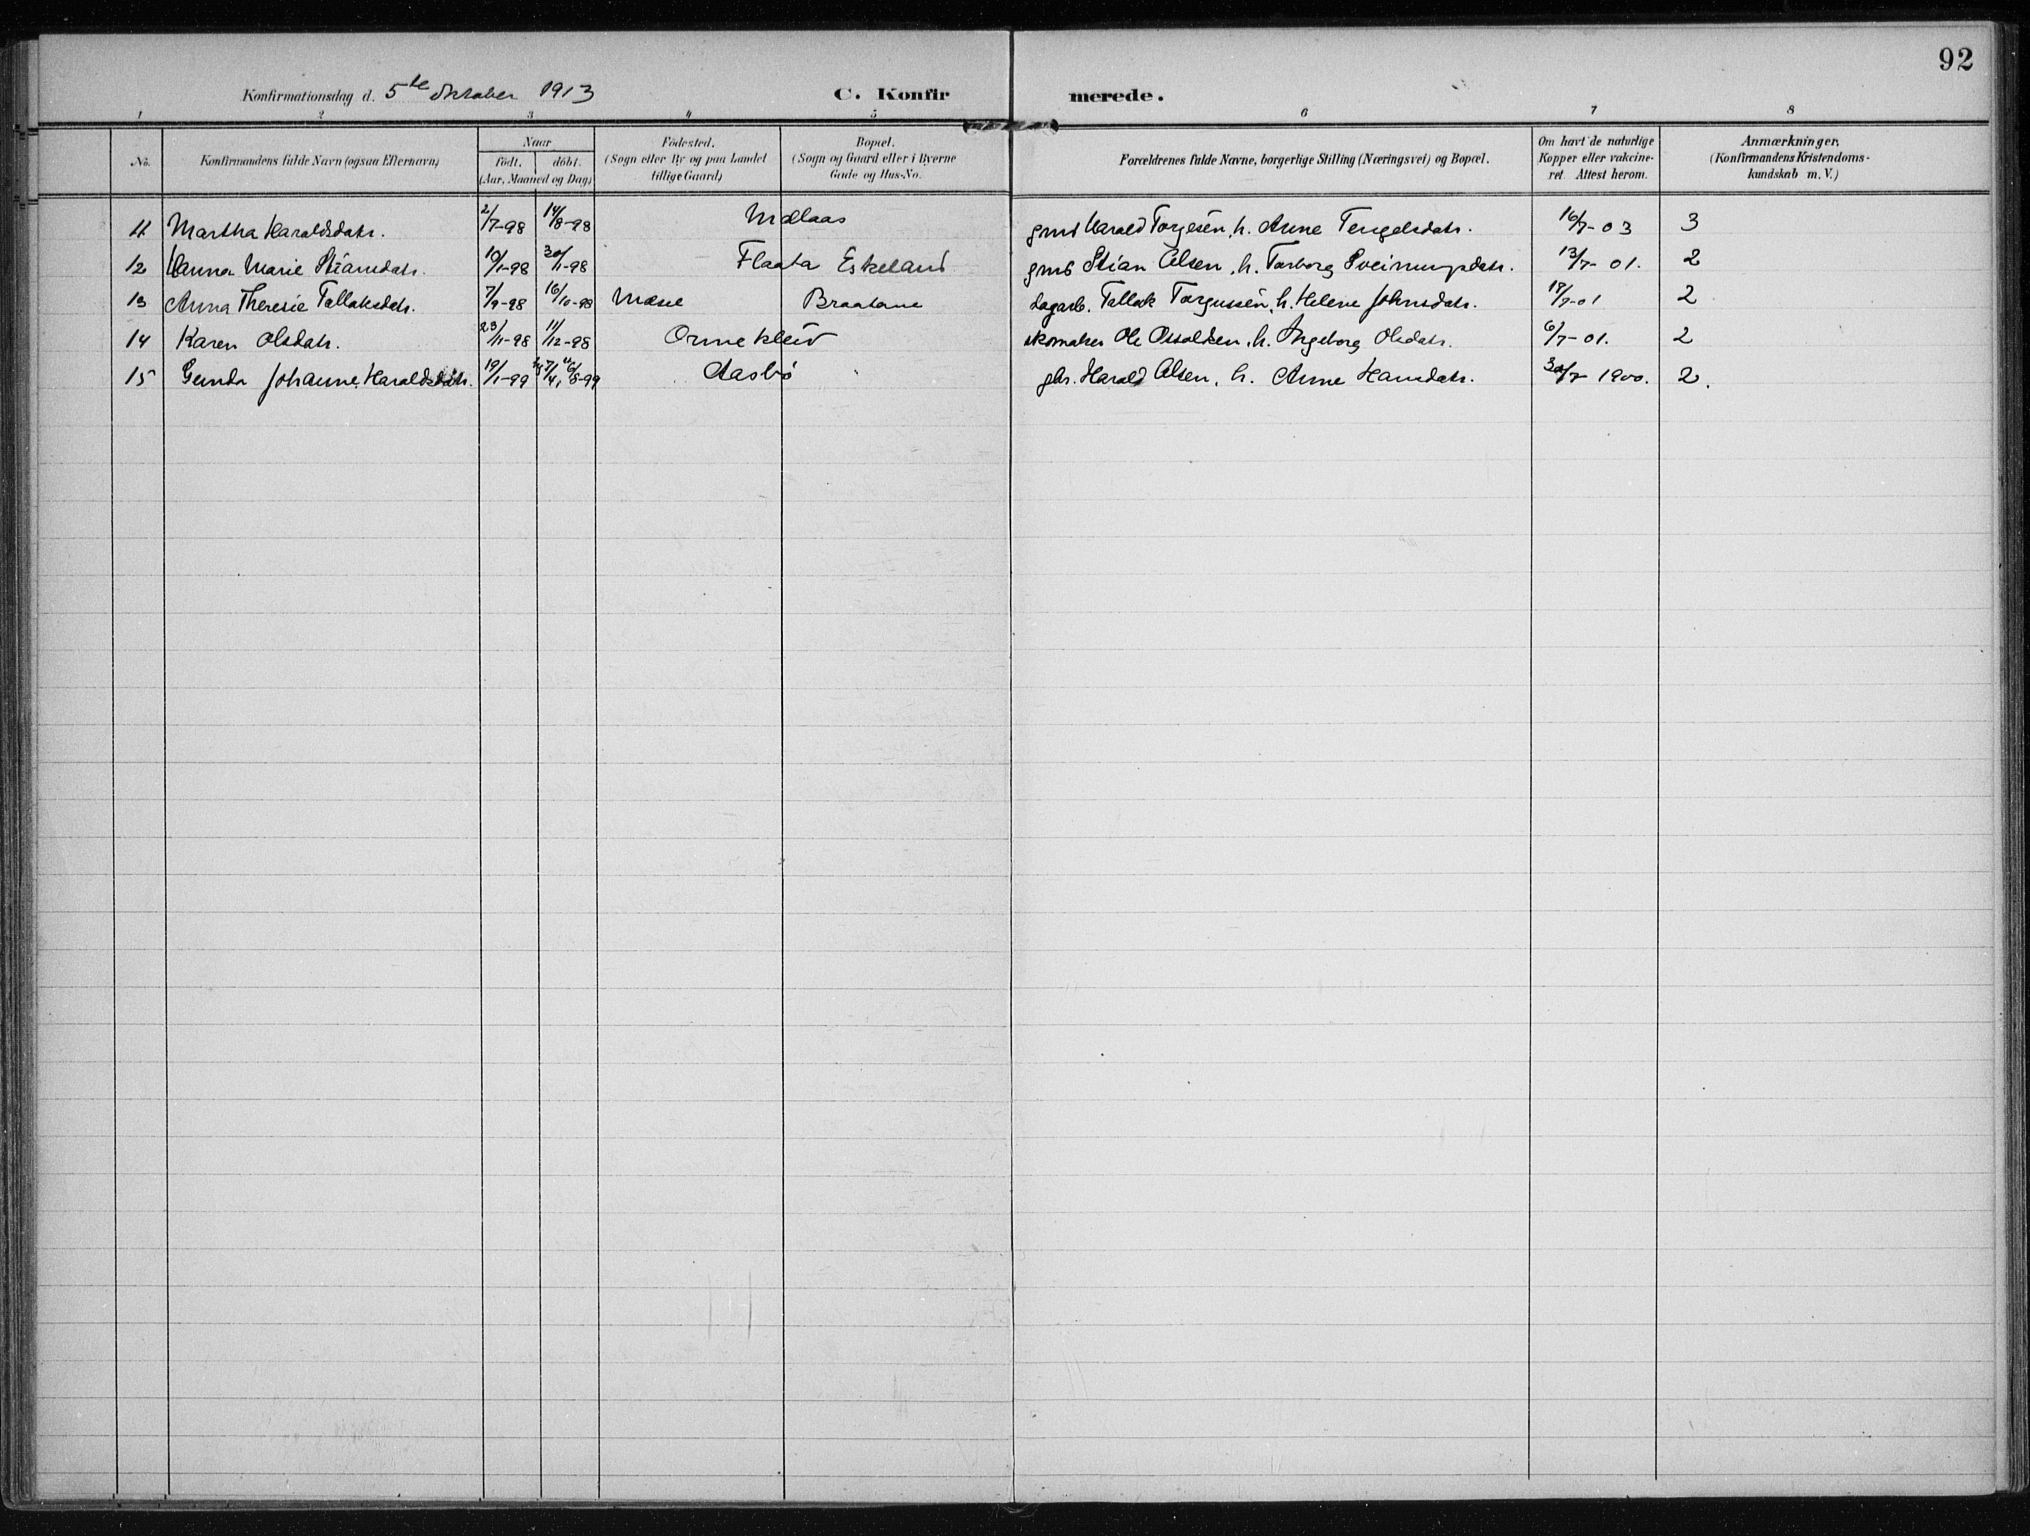 92
Konfirmationsdag d. 5te Oktober 1913 C. Konfirmerede.
1 2 3 4 5 6 7 8
No. Konfirmandens fulde Navn (ogsaa Efternavn) Naar født. døbt. (Aar, Maaned og Dag) Fødested. (Sogn eller By og paa Landet tillige Gaard) Bopæl. (Sogn og Gaard eller i Byerne Gade og Hus-No. Forældrenes fulde Navne, borgerlige Stilling (Næringsvei) og Bopæl. Om havt de naturlige Kopper eller vakcineret. Attest herom. Anmærkninger. (Konfirmandens Kristendomskundskab m. V.)
11 Martha Haraldsdatr. 2/7-98 14/8-98 Mælaas gmd Harald Torgesen, h. Anne Tengelsdatr. 16/7-03 3
12 Hanna Marie Stiansdatr. 10/1-98 30/1-98 Flaata Eskeland gmd Stian Olsen, h. Torborg Sveinungsdatr. 13/7-01. 2
13 Anna Theresie Tallaksdatr. 7/9-98 16/10-98 Mæsel Braatane dagarb. Tallak Torgussen, h. Helene Johnsdatr. 18/7-01 2
14 Karen Olsdatr. 23/11-98 11/12-98 Ormekleiv skomaker Ole Osvaldsen, h. Ingeborg Olsdatr. 6/7-01. 2
15 Gunda Johanne Haraldsdatr. 19/1-99 6/8-99 Aasbø gbr. Harald Olsen, h. Anne Hansdatr. 30/7 1900. 2.